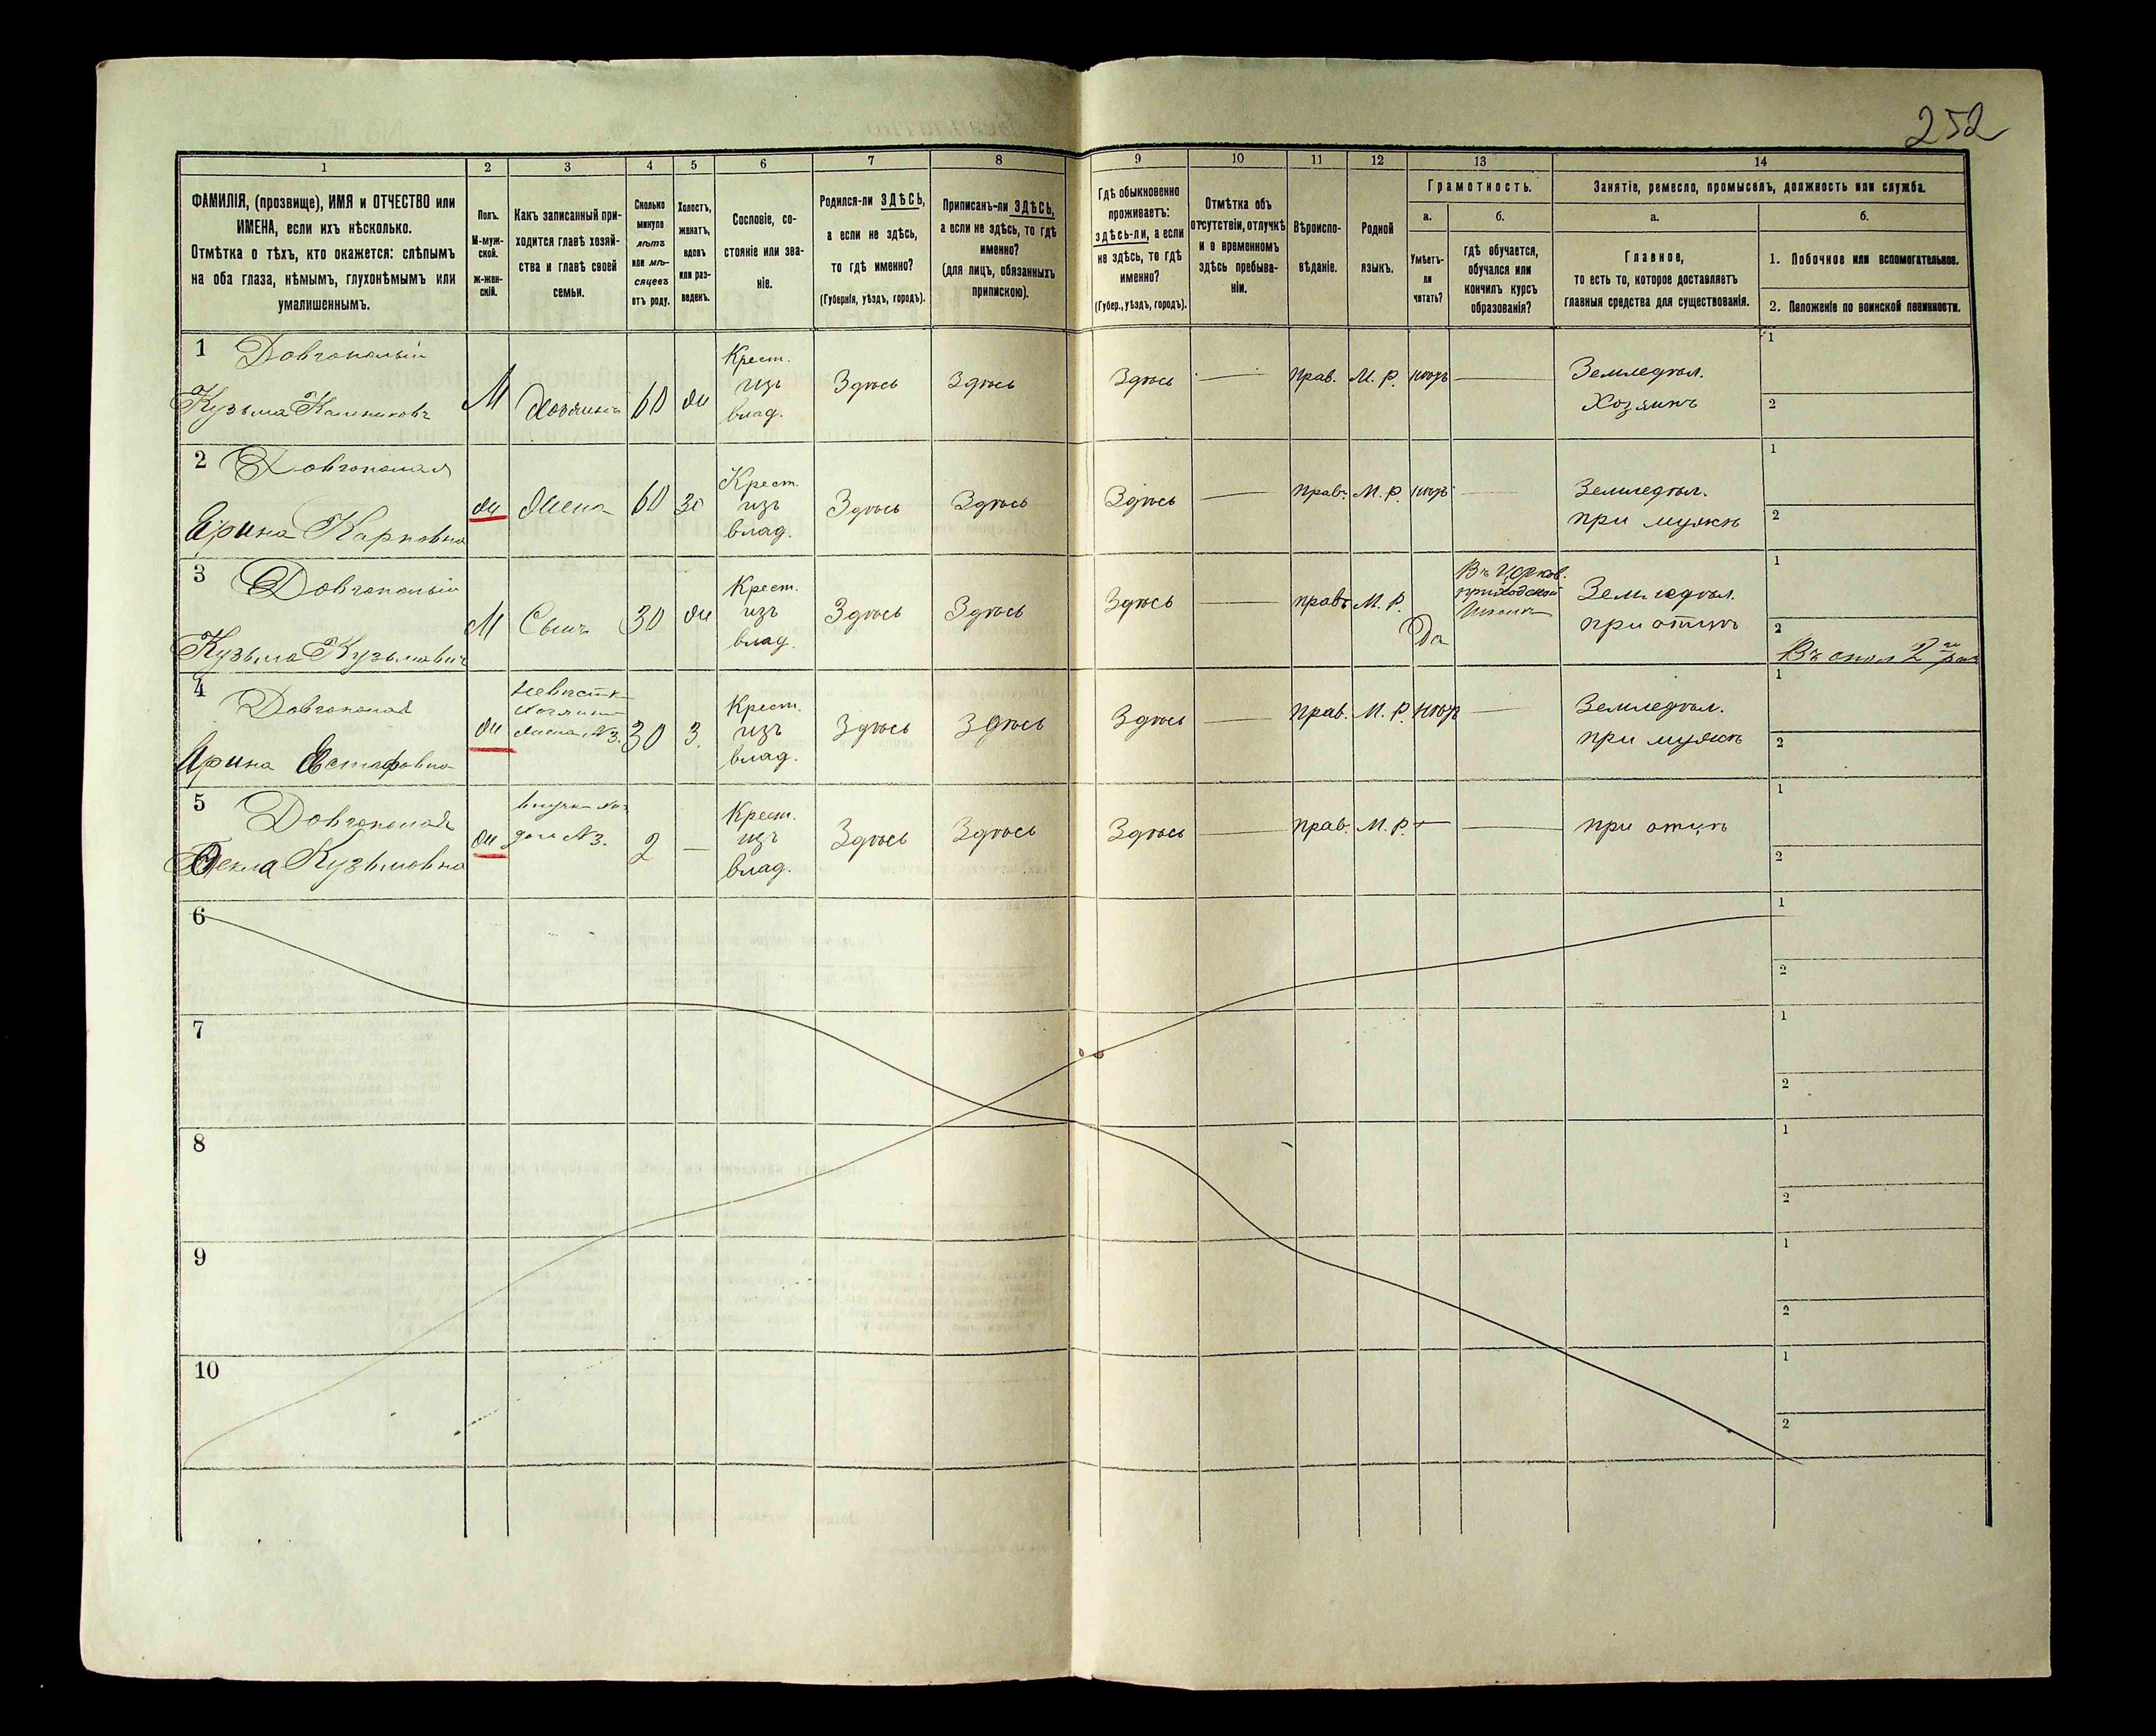 252
1 2 3 4 5 6 7 8 9 10 11 12 13 14
ФАМИЛІЯ, (прозвище), ИМЯ и ОТЧЕСТВО или
ИМЕНА, если ихъ нѣсколько.
Отмѣтка о тѣхъ, кто окажется: слѣпымъ
на оба глаза, нѣмымъ, глухонѣмымъ или
умалишеннымъ.
Полъ.
М-муж-
ской.
ж-жен-
скій.
Какъ записанный при-
ходится главѣ хозяй-
ства и главѣ своей
семьи.
Сколько
минуло
лѣтъ
или мѣ-
сяцевъ
отъ роду.
Холостъ,
женатъ,
вдовъ
или раз-
веденъ.
Сословіе, со-
стояніе или зва-
ніе.
Родился-ли ЗДѢСЬ,
а если не здѣсь,
то гдѣ именно?
(Губернія, уѣздъ, городъ).
Приписанъ-ли ЗДѢСЬ,
а если не здѣсь, то гдѣ
именно?
(для лицъ, обязанныхъ
припискою).
Гдѣ обыкновенно
проживаетъ:
здѣсь-ли, а если
не здѣсь, то гдѣ
именно?
(Губер., уѣздъ, городъ).
Отмѣтка объ
отсутствіи, отлучкѣ
и о временномъ
здѣсь пребыва-
ніи.
Вѣроиспо-
вѣданіе.
Родной
языкъ.
Грамотность.
а.
Умѣетъ-
ли
читать?
б.
гдѣ обучается,
обучался или
кончилъ курсъ
образованія?
Занятіе, ремесло, промыселъ, должность или служба.
а.
Главное,
то есть то, которое доставляетъ
главныя средства для существованія.
б.
1. Побочное или вспомогательное.
2. Положеніе по воинской повинности.
1 Довгополый
Кузьма Калениковъ
М
Хозяинъ
60
жи
Крест.
изъ
влад.
Здѣсь
Здѣсь
Здѣсь
Прав.
М. Р.
нѣтъ
Земледѣл.
Хозяинъ
1
2
2 Довгополая
Ирина Карповна
жи
Жена
60
Крест.
изъ
влад.
Здѣсь
Здѣсь
Здѣсь
Прав.
М. Р.
нѣтъ
Земледѣл.
при мужѣ
1
2
3 Довгополый
Кузьма Кузьмовичъ
М
Сынъ
30
жи
Крест.
изъ
влад.
Здѣсь
Здѣсь
Здѣсь
прав.
М. Р.
Да
Въ Церков.
приходской
школѣ
Земледѣл.
при отцѣ
1
2
Въ опол 2го раз
4 Довгополая
Ирина Евстафовна
жи
Невѣстк
Хозяина
жена №3.
30
З.
Крест.
изъ
влад.
Здѣсь
Здѣсь
Здѣсь
Прав.
М. Р.
нѣтъ
Земледѣл.
при мужѣ
1
2
5 Довгополая
Фекла Кузьмовна
жи
внучка Хоз
дочь №3.
2
—
Крест.
изъ
влад.
Здѣсь
Здѣсь
Здѣсь
Прав.
М. Р.
при отцѣ
1
2
6
1
2
7
1
2
8
1
2
9
1
2
10
1
2